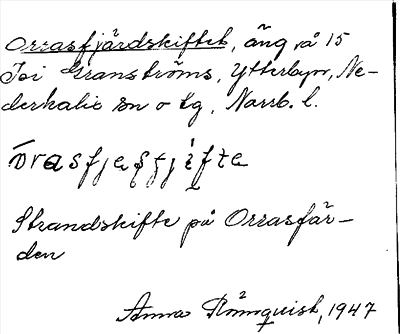 Orrasfjärdskiftet, äng på 15
Joi Granströms, Ytterbyn, Ne-
derkalix sn o tg, Norrb. l.
Strandskifte på Orrasfjär-
den
Anna Rönnquist, 1947